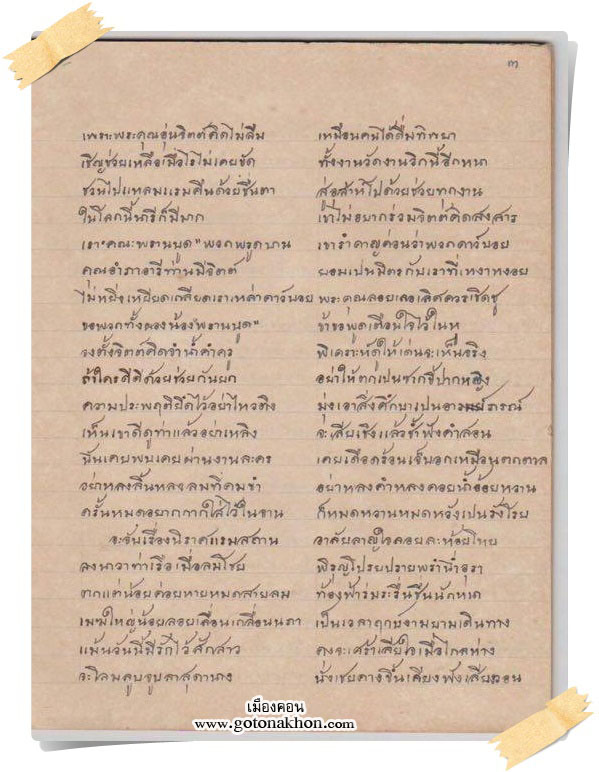 ๓
เพราะพระคุณอุ่นจิตต์คิดไม่ลืม เหมือนคนได้ดื่มทิพยา
เชิญช่วยเหลือเมื่อไรไม่เคยขัด ทั้งงานวัดงานวิกนี้อีกหนา
ชวนไปแหลมแรมคืนด้วยชื่นตา สู่อุส่าห์ไปด้วยช่วยทุกงาน
ในโลกนี้นารีก็มีมาก เขาไม่อยากร่วมจิตต์คิดสงสาร
เราคณะพรานบูด"พวกพรูดบาน เขารำคาญค่อนว่าพวกดาว์บอย
คุณอำภาอารีท่านมีจิตต์ ยอมเป็นมิตรกับเราที่เหงาหงอย
ไม่หยิ่งเหยียดเกลียดเราเหล่าคาว์บอย พระคุณลอยเลอเลิศควรเชิดชู
ขอพวกทั้งผองน้อง"พรานบูด" ข้าขอพูดเตือนใจไว้ในหู
จงตั้งจิตต์คิดจำน้ำคำครู พิเคราะห์ดูให้เด่นจะเห็นจริง
ถ้าใครดีดีด้วยช่วยกันยก อย่าให้ตกเป็นซากขี้ปากหญิง
ความประพฤติยึดไว้อย่าไหวติง มุ่งเอาสิ่งศึกษาเป็นอารมย์
เห็นเขาดีดูท่าแล้วอย่าเหลิง จะเสียเชิงแล้วช้ำฟังคำสอน
ฉันเคยพบเคยผ่านงานละคร เคยเดือดร้อนเจ็บอกเหมือนตกตาล
อย่าหลงลิ้นหลงลมที่คมขำ อย่าหลงคำหลงคอยน้ำอ้อยหวาน
ครั้นหมดอยากกากใส่ไว้ในชาน ก็หมดหวานหมดหวังเป็นรังโรย
จะจับเรื่องนิราศแรมสถาน อาลัยลาญใจลอยละห้อยโหย
ลงนาวาท่าเรือเมื่อลมโชย พิรุญโปรยปรายพรำน้ำ
ตกแต่น้อยค่อยหายหมดสายลม ท้องฟ้าร่มระรื่นชื่นนักหนา
เมฆใหญ่น้อยลอยเลื่อนเกลื่อนนภา เป็นเวลางามยามเดินทาง
แม้นวันนี้มีรักไว้สักสาว คงจะเศร้าเสียใจเมื่อไกลห่าง
จะโลมลูบจูบลาสุดานาง นั่งเชยคางขึ้นเคียงฟังเสียงวอน
เมืองคอน
www.gotonakhon.com